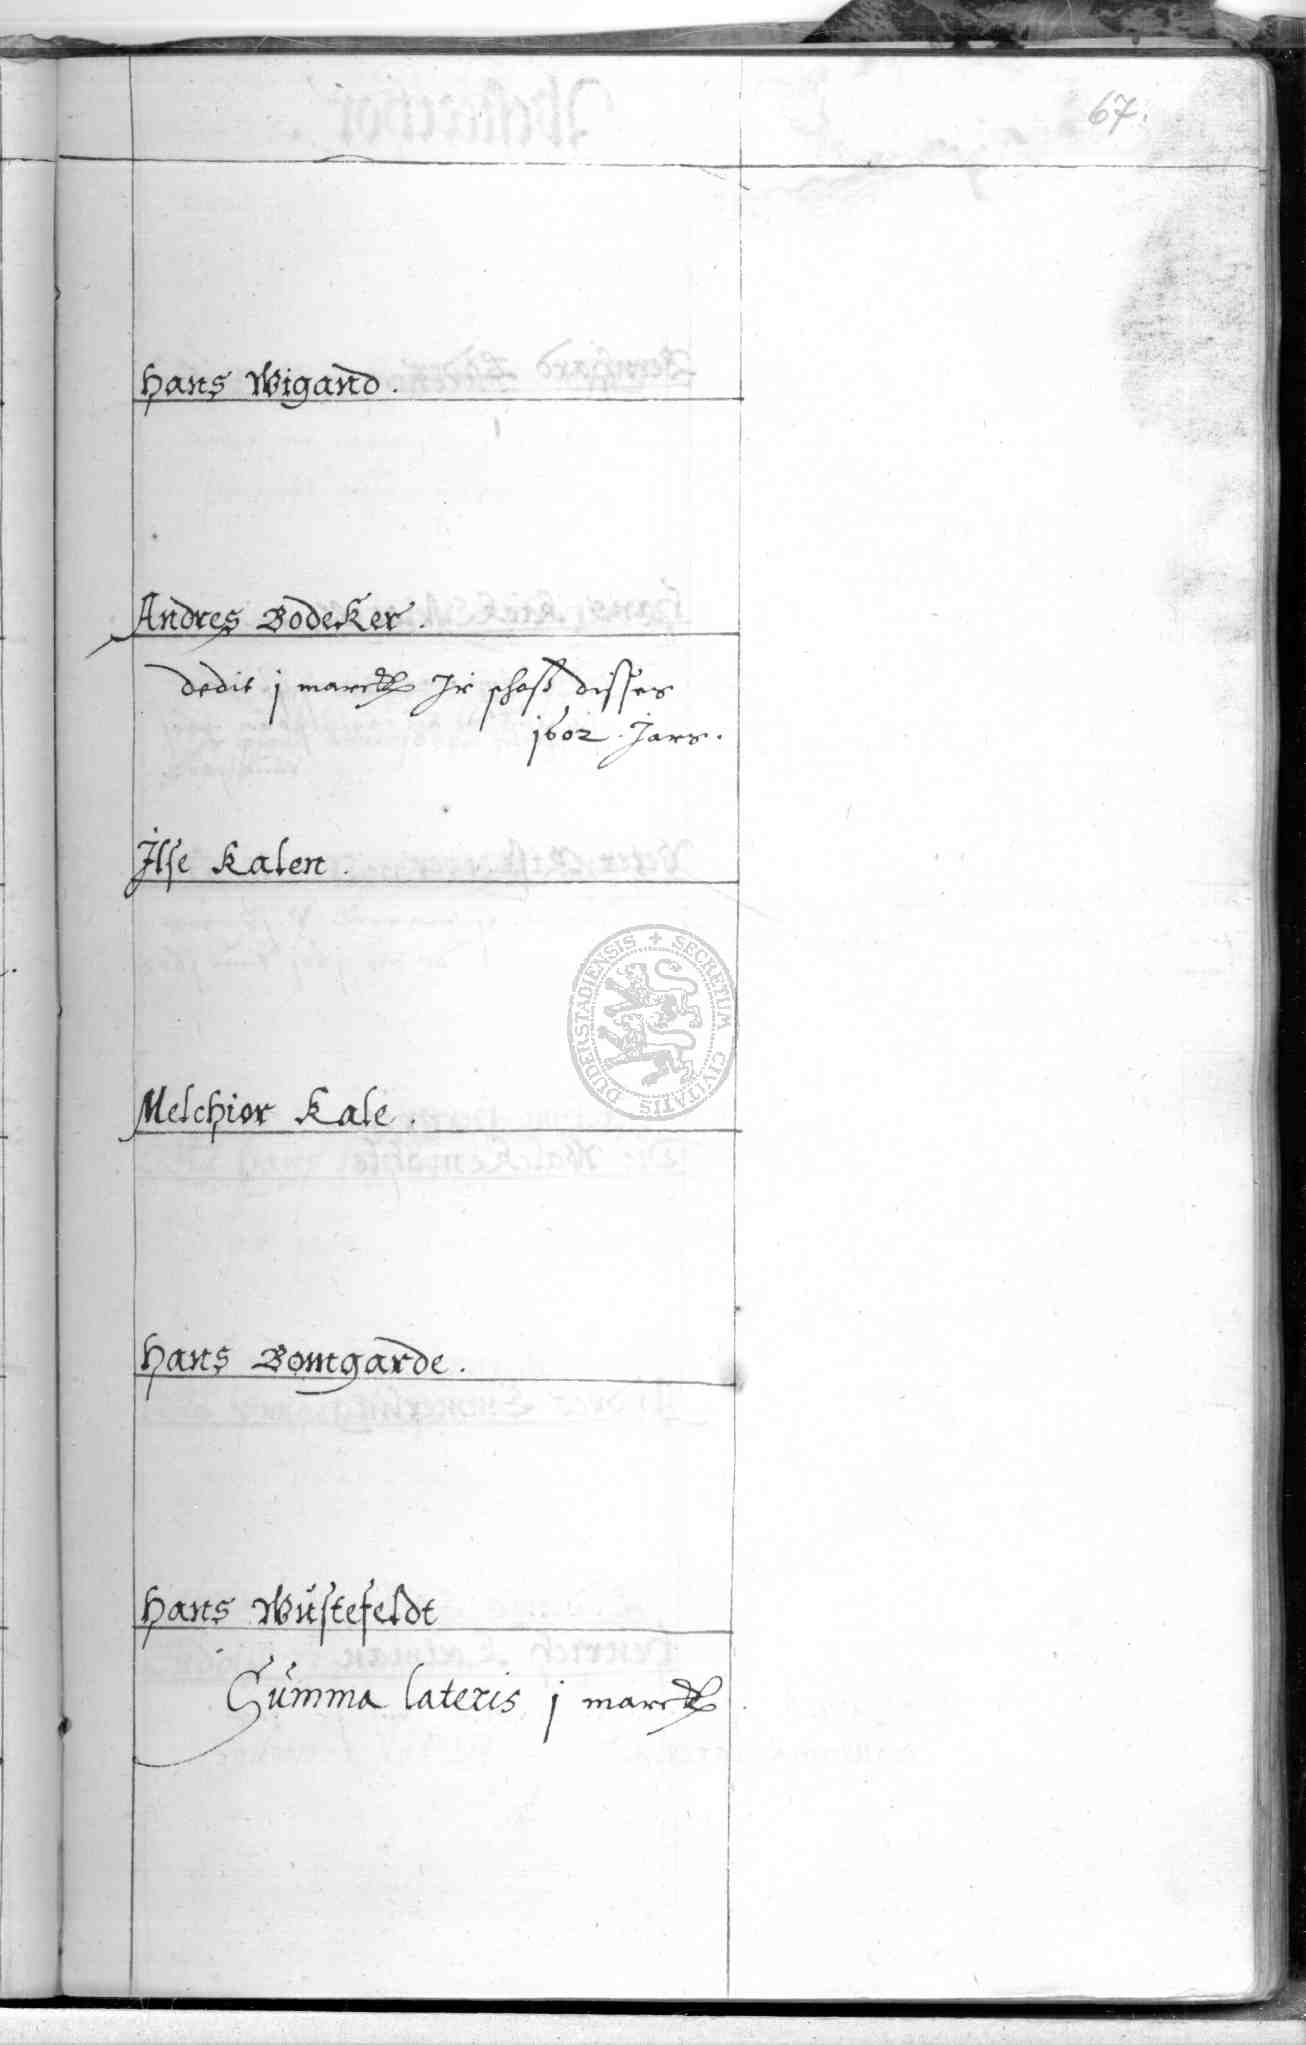 67.
Hans Wigand.
Andres Bodeker.
dedit j marck Ir schoß disses
1602. Jars.
Ilse Kalen.
SECRETUM CIVITATIS DUDERSTADIENSIS
Melchior Kale.
Hans Bomgarde.
Hans Wüstefeldt
Summa lateris j marck